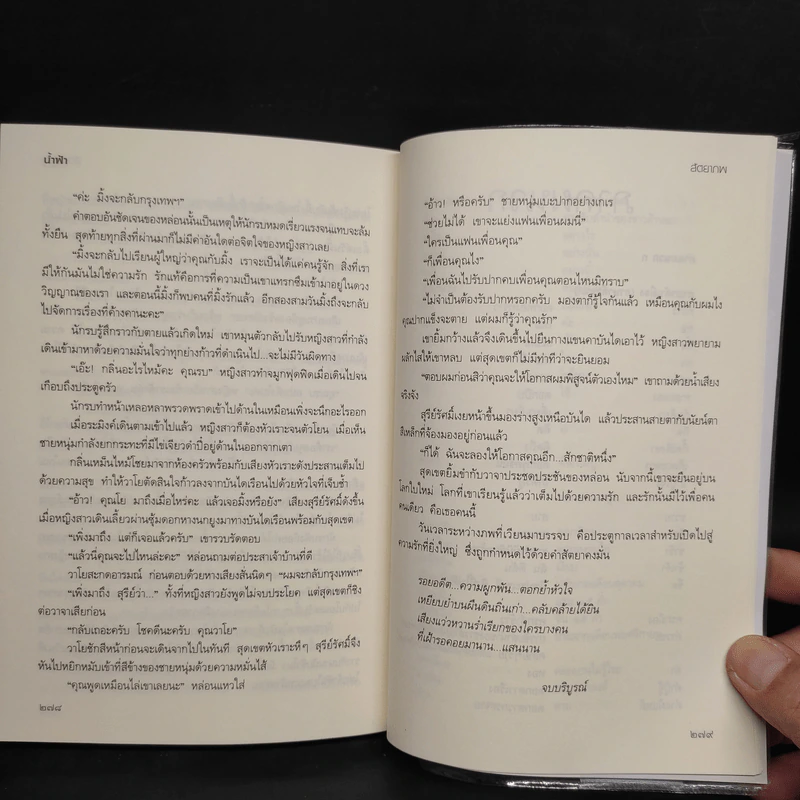 น้ำฟ้า
“ค่ะ มิ้งจะกลับกรุงเทพฯ”
คำตอบอันชัดเจนของหล่อนนั้นเป็นเหตุให้นักรบหมดเรี่ยวแรงจนแทบจะล้ม
ทั้งยืน สุดท้ายทุกสิ่งที่ผ่านมาก็ไม่มีค่าอันใดต่อจิตใจของหญิงสาวเลย
“มิ้งจะกลับไปเรียนผู้ใหญ่ว่าคุณกับมิ้ง เราจะเป็นได้แค่คนรู้จัก สิ่งที่เรา
มีให้กันมันไม่ใช่ความรัก รักแท้คือการที่ความเป็นเขาแทรกซึมเข้ามาอยู่ในดวง
วิญญาณของเรา และตอนนี้มิ้งก็พบคนที่มิ้งรักแล้ว อีกสองสามวันมิ้งถึงจะกลับ
ไปจัดการเรื่องที่ค้างคานะคะ”
นักรบรู้สึกราวกับตายแล้วเกิดใหม่ เขาหมุนตัวกลับไปรับหญิงสาวที่กำลัง
เดินเข้ามาหาด้วยความมั่นใจว่าทุกย่างก้าวที่ดำเนินไป...จะไม่มีวันผิดทาง
“เอ๊ะ! กลิ่นอะไรไหม้คะ คุณรบ” หญิงสาวทำจมูกฟุดฟิดเมื่อเดินไปจน
เกือบถึงประตูครัว
นักรบทำหน้าเหลอหลาพรวดพราดเข้าไปด้านในเหมือนเพิ่งจะนึกอะไรออก
เมื่อระมิงค์เดินตามเข้าไปแล้ว หญิงสาวก็ต้องหัวเราะจนตัวโยน เมื่อเห็น
ชายหนุ่มกำลังยกกระทะที่มีไข่เจียวดำปี๋อยู่ด้านในออกจากเตา
กลิ่นเหม็นไหม้โชยมาจากห้องครัวพร้อมกับเสียงหัวเราะดังประสานเต็มไป
ด้วยความสุข ทำให้วาโยตัดสินใจก้าวลงจากบันไดเรือนไปด้วยหัวใจที่เจ็บช้ำ
“อ้าว! คุณโย มาถึงเมื่อไหร่คะ แล้วเจอมิ้งหรือยัง” เสียงสุรีย์รัศมิ์ดังขึ้น
เมื่อหญิงสาวเดินเลี้ยวผ่านซุ้มดอกหางนกยูงมาทางบันไดเรือนพร้อมกับสุดเขต
“เพิ่งมาถึง แต่ก็เจอแล้วครับ” เขารวบรัดตอบ
“แล้วนี่คุณจะไปไหนล่ะคะ” หล่อนถามต่อประสาเจ้าบ้านที่ดี
วาโยสะกดอารมณ์ ก่อนตอบด้วยหางเสียงสั่นนิดๆ “ผมจะกลับกรุงเทพฯ”
“เพิ่งมาถึง สุรีย์ว่า...” ทั้งที่หญิงสาวยังพูดไม่จบประโยค แต่สุดเขตก็ชิง
ต่อวาจาเสียก่อน
“กลับเถอะครับ โชคดีนะครับ คุณวาโย”
วาโยชักสีหน้าก่อนจะเดินจากไปในทันที สุดเขตหัวเราะหึๆ สุรีย์รัศมิ์จึง
หันไปหยิกหมับเข้าที่สีข้างของชายหนุ่มด้วยความหมั่นไส้
“คุณพูดเหมือนไล่เขาเลยนะ” หล่อนแหวใส่
๒๗๘
สัตยาภพ
“อ้าว! หรือครับ” ชายหนุ่มเบะปากอย่างเกเร
“ช่วยไม่ได้ เขาจะแย่งแฟนเพื่อนผมนี่”
“ใครเป็นแฟนเพื่อนคุณ”
“ก็เพื่อนคุณไง”
“เพื่อนฉันไปรับปากคบเพื่อนคุณตอนไหนมิทราบ”
“ไม่จำเป็นต้องรับปากหรอกครับ มองตาก็รู้ใจกันแล้ว เหมือนคุณกับผมไง
คุณปากแข็งจะตาย แต่ผมก็รู้ว่าคุณรัก”
เขายิ้มกว้างแล้วจึงเดินขึ้นไปยืนกางแขนคาบันไดเอาไว้ หญิงสาวพยายาม
ผลักไสให้เขาหลบ แต่สุดเขตก็ไม่มีท่าทีว่าจะยินยอม
“ตอบผมก่อนสิว่าคุณจะให้โอกาสผมพิสูจน์ตัวเองไหม” เขาถามด้วยน้ำเสียง
จริงจัง
สุรีย์รัศมิ์เงยหน้าขึ้นมองร่างสูงเหนือบันได แล้วประสานสายตากับนัยน์ตา
สีเหล็กที่จ้องมองอยู่ก่อนแล้ว
“ก็ได้ ฉันจะลองให้โอกาสคุณอีก...สักชาติหนึ่ง”
สุดเขตยิ้มขำกับวาจาประชดประชันของหล่อน นับจากนี้เขาจะยืนอยู่บน
โลกใบใหม่ โลกที่เขาเรียนรู้แล้วว่าเต็มไปด้วยความรัก และรักนั้นมีไว้เพื่อคน
คนเดียว คือเธอคนนี้
วันเวลาระหว่างภพที่เวียนมาบรรจบ คือประตูกาลเวลาสำหรับเปิดไปสู่
ความรักที่ยิ่งใหญ่ ซึ่งถูกกำหนดไว้ด้วยคำสัตยาคงมั่น
รอยอดีต...ความผูกพัน...ตอกย้ำหัวใจ
เหยียบย่ำบนผืนดินถิ่นเก่า...คลับคล้ายได้ยิน
เสียงแว่วหวานร่ำเรียกของใครบางคน
ที่เฝ้ารอคอยมานาน...แสนนาน
จบบริบูรณ์
๒๗๙